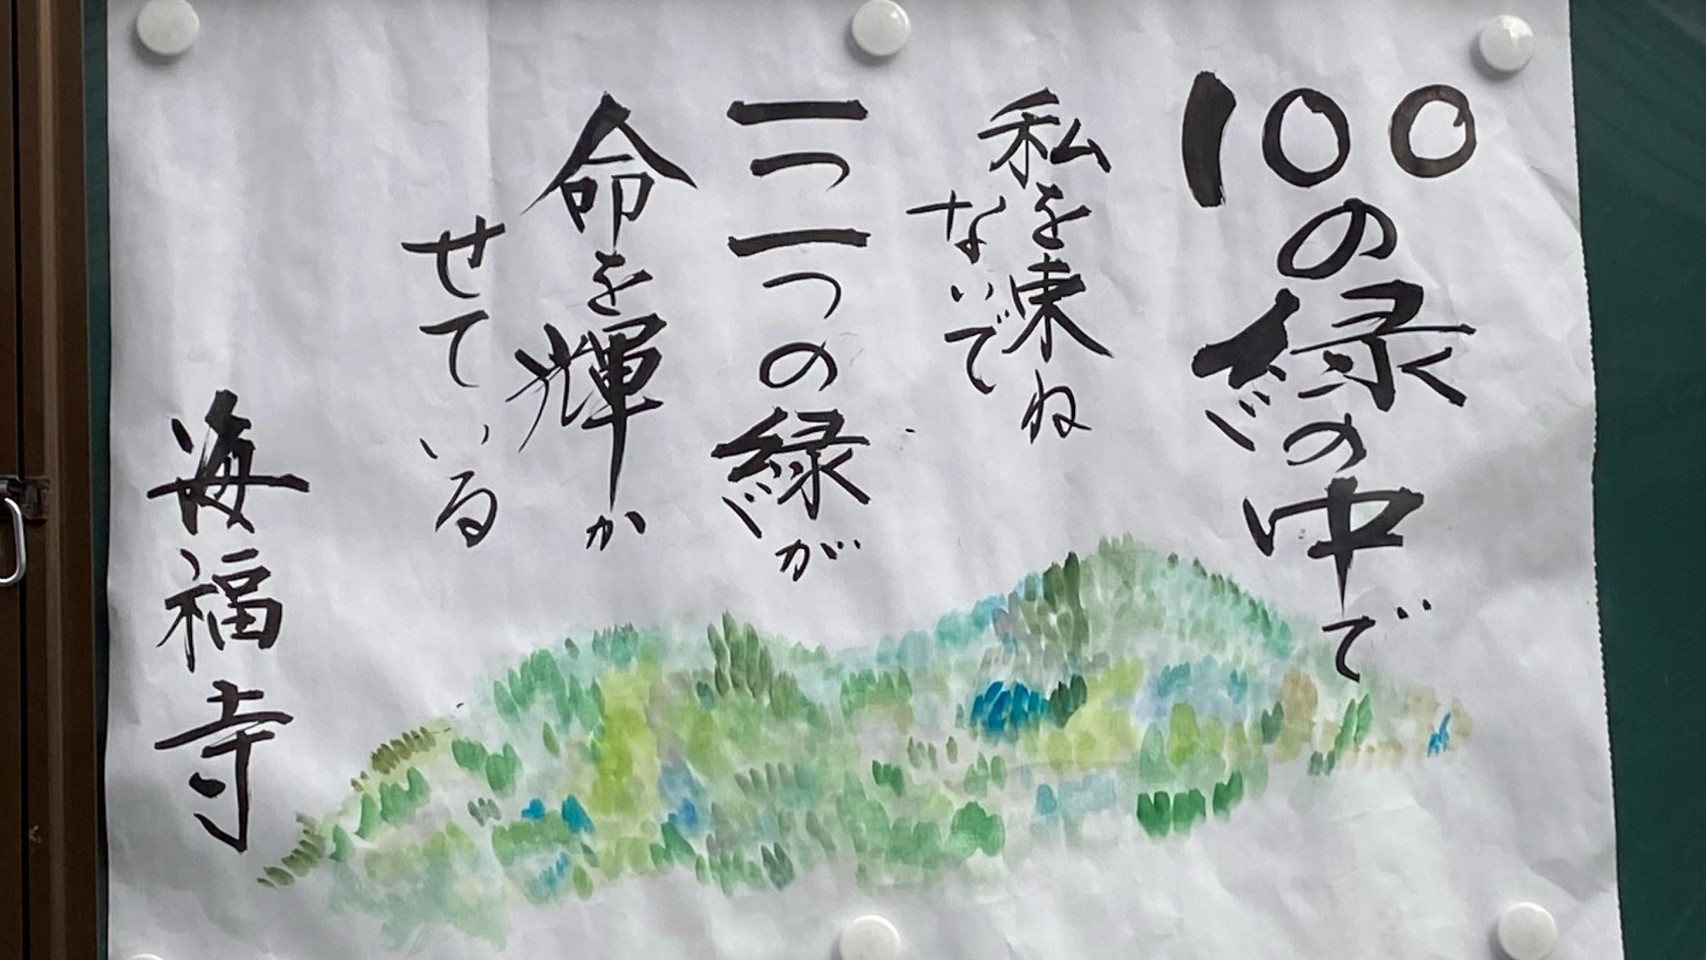 100の緑の中で
私を束ね
ないで
一つ一つの緑が
命を輝か
せている
海福寺